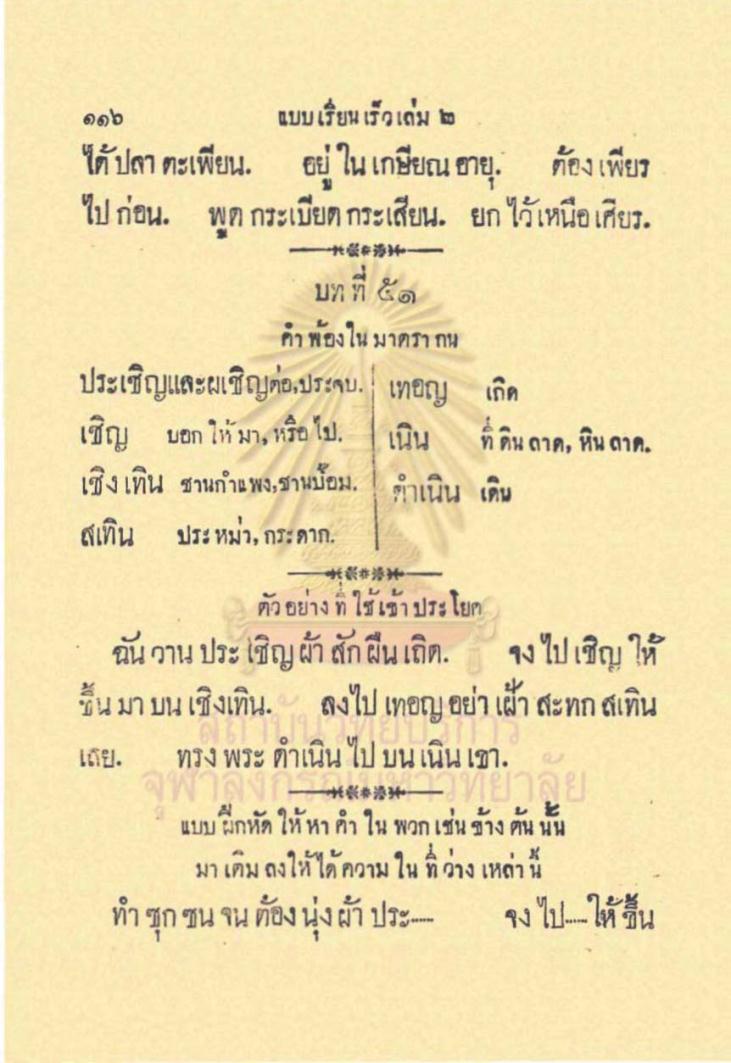 ๑๑๖ แบบเรียนเร็วเล่ม ๒
ได้ปลา ตะเพียน. อยู่ ใน เกษียณ อายุ. ต้อง เพียร
ไป ก่อน. พูด กระเบียด กระเสียน. ยก ไว้ เหนือ เศียร.
บท ที่ ๕๑
คำ พ้อง ใน มาตรา กน
ประเชิญและผเชิญ ต่อ, ประจบ.
เชิญ บอก ให้ มา, หรือ ไป.
เชิง เทิน ชานกำแพง, ชานป้อม.
สเทิน ประ หม่า, กระดาก.
เทอญ เถิด
เนิน ที่ ดิน ลาด, หิน ลาด.
ดำเนิน เดิน
ตัว อย่าง ที่ ใช้ เข้า ประ โยค
ฉัน วาน ประ เชิญ ผ้า สัก ผืน เถิด. จง ไป เชิญ ให้
ขึ้น มา บน เชิงเทิน. ลงไป เทอญ อย่า เฝ้า สะทก สเทิน
เลย. ทรง พระ ดำเนิน ไป บน เนิน เขา.
สถาบันวิทยบริการ
จุฬาลงกรณ์มหาวิทยาลัย
แบบ ฝึกหัด ให้ หา คำ ใน พวก เช่น ข้าง ต้น นั้น
มา เติม ลงให้ ได้ ความ ใน ที่ ว่าง เหล่า นี้
ทำ ซุก ซน จน ต้อง นุ่ง ผ้า ประ..... จง ไป.....ให้ ขึ้น